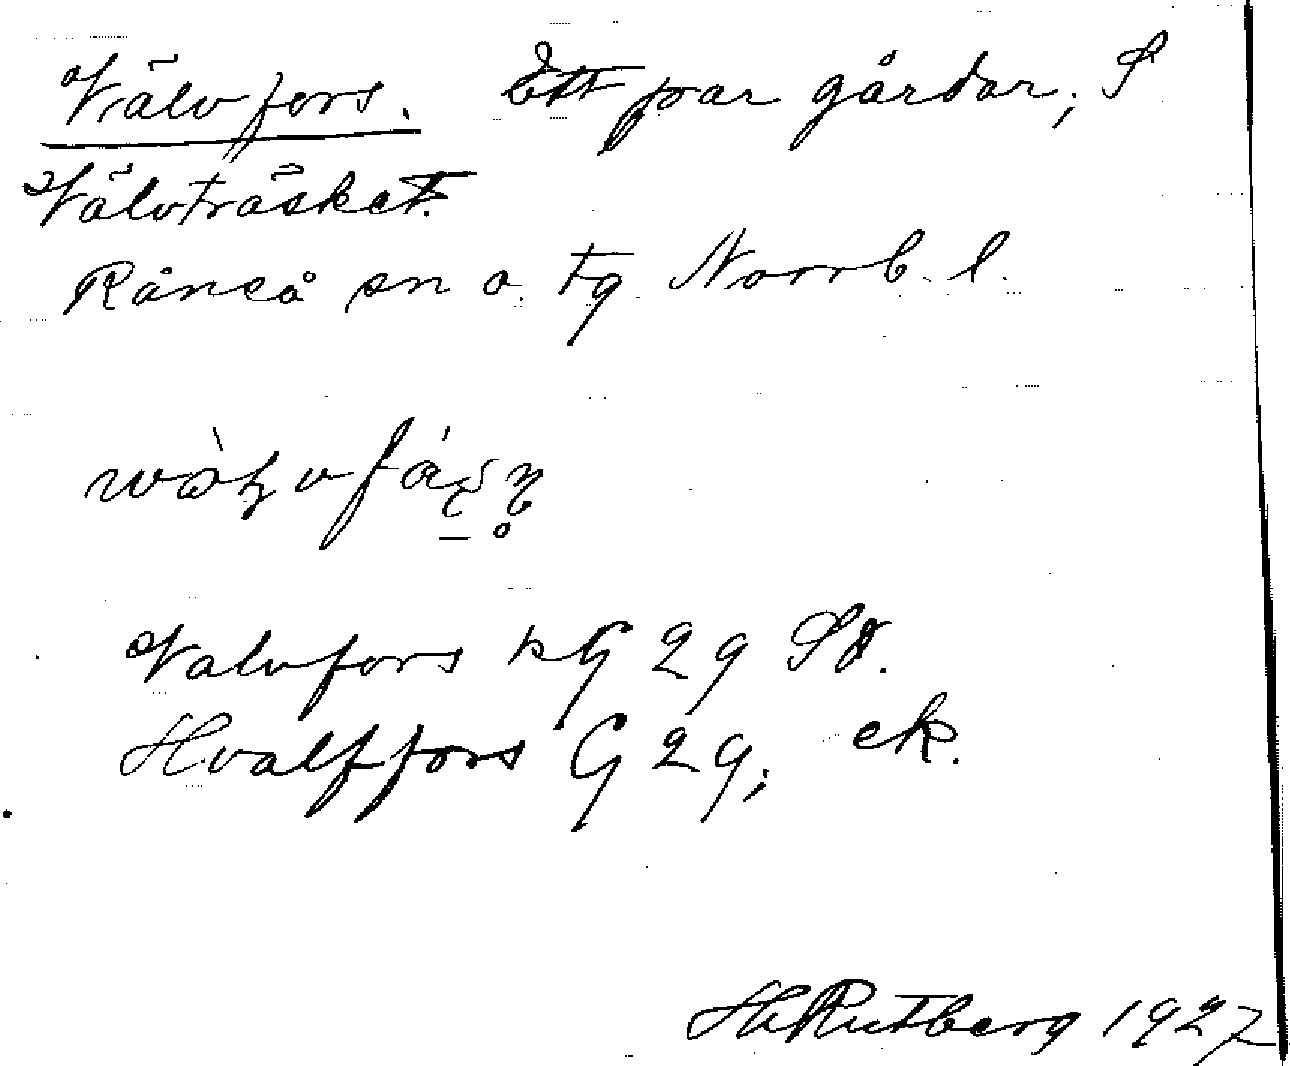 Välvfors. Ett par gårdar, S
Välvträsket.
Råneå sn o. tg Norrb. l.
Valvfors kG 29 Sd.
Hvalffors G 29; ek.
H Rutberg 1927